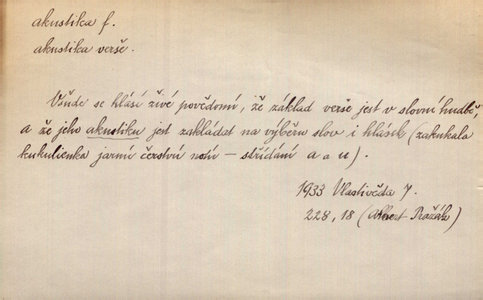 akustika f.
akustika verše.
Všude se hlásí živé povědomí, že základ verše jest v slovní hudbě,
a že jeho akustiku jest zakládat na výběru slov i hlásek (zakukala
kukulienka jarní čerstvú notú – střídání a a u).
1933 Vlastivěda 7.
228, 18 (Albert Pražák)